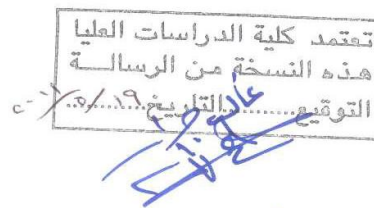 تعتمد كلية الدراسات العليا
هذه النسخة من الرسالــة
التوقيع............التاريخ١٩/٥/